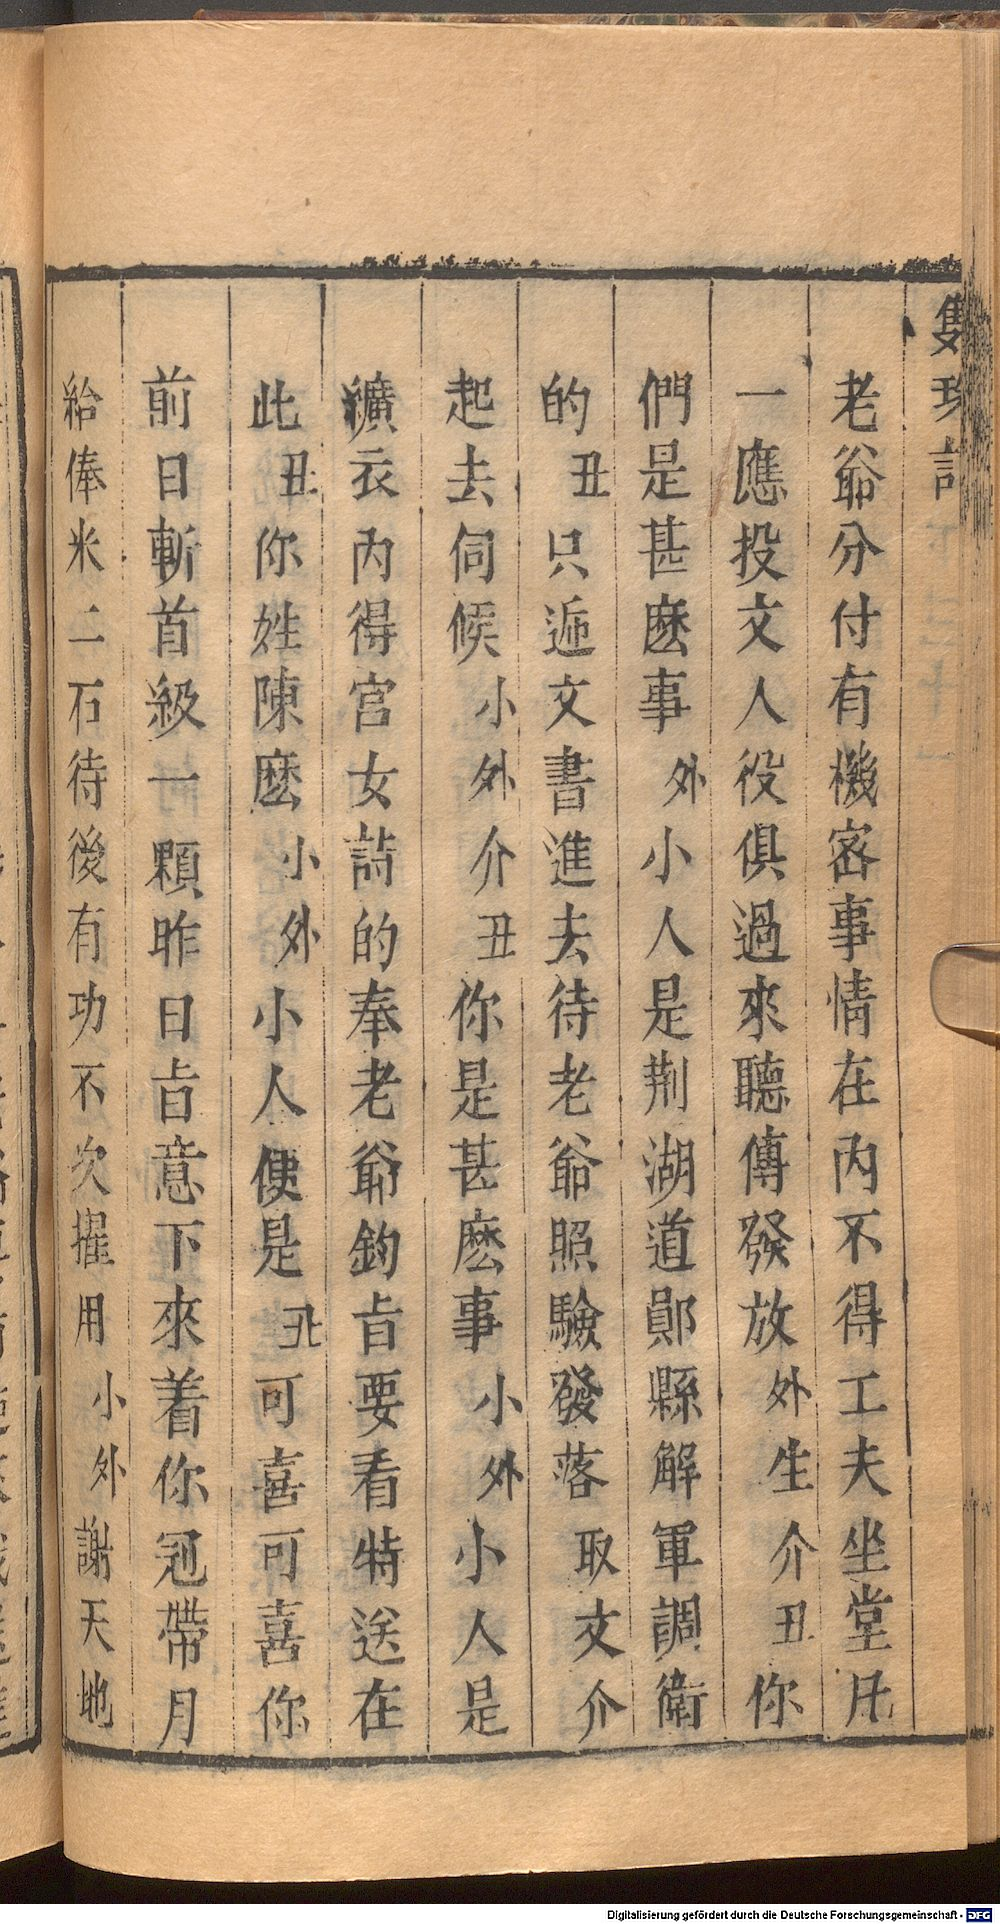 隻珠記
老爺分付有機密事情在內不得工夫坐堂凡
一應投文人役俱過來聽傳發放外生介丑你
們是甚麽事外小人是荆湖道鄖縣解軍調衛
的丑只逓文書進去待老爺照驗發落取文介
起去伺候小外介丑你是甚麽事小外小人是
纊衣內得宮女詩的奉老爺鈞㫖要看特送在
此丑你姓陳麽小外小人便是丑可喜可喜你
前日斬首級一顆昨日㫖意下來着你冠帶月
給俸米二石待後有功不次擢用小外謝天地
Digitalisierung gefördert durch die Deutsche Forschungsgemeinschaft - DFG